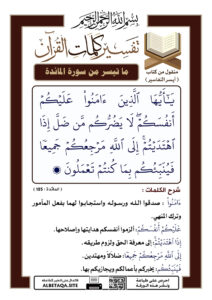 بسم الله الرحمن الرحيم
تفسير كلمات القرآن
منقول من كتاب
( أيسر التفاسير )
ما تيسر من سورة المائدة
يَـٰٓأَيُّهَا ٱلَّذِينَ ءَامَنُوا۟ عَلَيْكُمْ
أَنفُسَكُمْ ۖ لَا يَضُرُّكُم مَّن ضَلَّ إِذَا
ٱهْتَدَيْتُمْ ۚ إِلَى ٱللَّهِ مَرْجِعُكُمْ جَمِيعًا
فَيُنَبِّئُكُم بِمَا كُنتُمْ تَعْمَلُونَ
شرح الكلمات : ( المائدة : 105 )
ءَامَنُوا۟ : صدقوا الله ورسوله واستجابوا لهما بفعل المأمور
وترك المنهي.
عَلَيْكُمْ أَنفُسَكُمْ : ألزموا أنفسكم هدايتها وإصلاحها.
إِذَا ٱهْتَدَيْتُمْ : إلى معرفة الحق ولزوم طريقه.
إِلَى ٱللَّهِ مَرْجِعُكُمْ جَمِيعًا : ضلالاً ومهتدين.
فَيُنَبِّئُكُم : يخبركم بأعمالكم ويجازيكم بها.
ALBETAQA.SITE